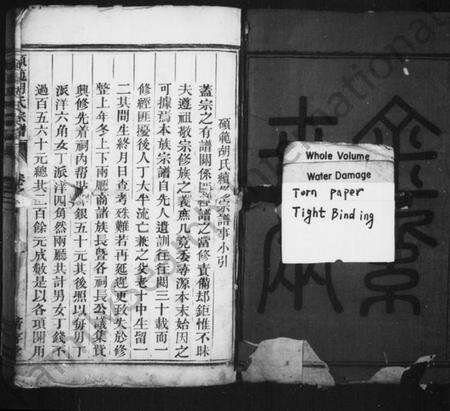 碩範胡氏續修宗譜事小引
蓋宗之有譜關係 譜之當修責備却鉅惟不昧
夫遵祖敬宗修族之義庶几党委尋源本末始因之
可據焉本族宗譜自先人遺訓在在闕三十載而一
修經匪擾後人丁大半流亡兼之父老十中生留一
二其間生終月日查考殊難若再延遲更致失於修
整上年冬上下兩廳商諸族長暨各祠長公議集資
興修先着祠內幇 銀五十元其後照以每男丁
派洋六角女丁派洋四角然兩廳共計男女丁錢不
過百五六十元總共 百餘元成數是以各項開用
碩範胡氏宗譜
Whole Volume
Water Damage
Torn paper
Tight Binding